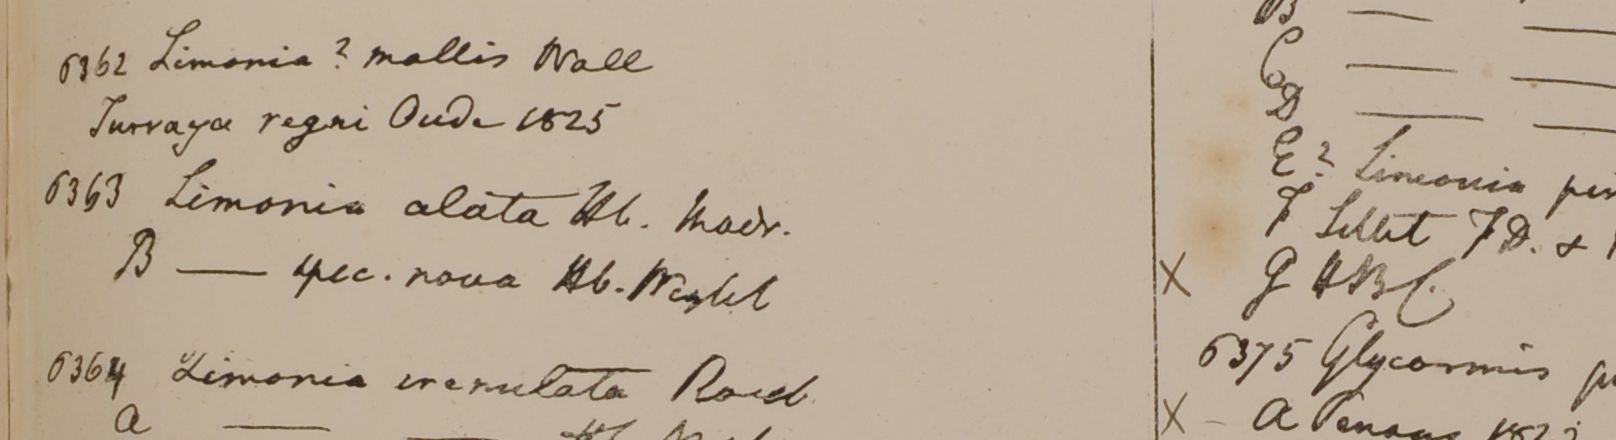 6362 Limonia ? mollis Wall
Turraya regni Oude 1825
6363 Limonia alata Hb. Madr.
B — spec. nova Hb. Wight
6364 Limonia crenulata Roxb
a — —
B — —
C — —
D — —
E ? Limonia
F Sillet FD. &
X G HBC.
6375 Glycosmis
X - a Penang